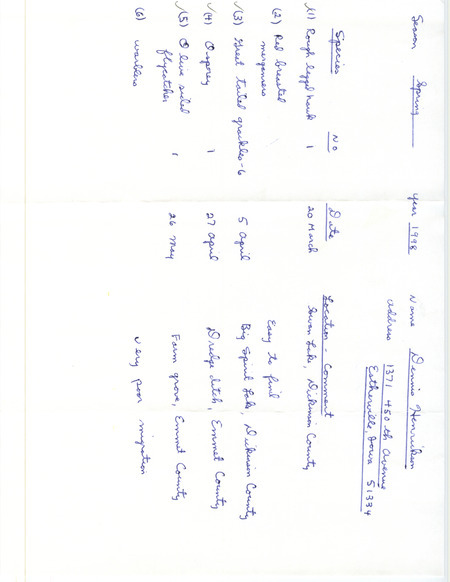 Season Spring year 1998 Name Dennis Henrikson
address 1371 450th Avenue
Estherville, Iowa 51334
Species No Date Location - Comment
✓(1) Rough legged hawk 1 20 March Swan Lake, Dickinson County
(2) Red breasted
mergansers Easy to find
✓(3) Great tailed grackles-6 5 April Big Spirit Lake, Dickinson County
✓(4) Osprey 1 27 April Dredge ditch, Emmet County
✓(5) Olive sided
flycatcher 1 26 May Farm grove, Emmet County
(6) warblers very poor migration